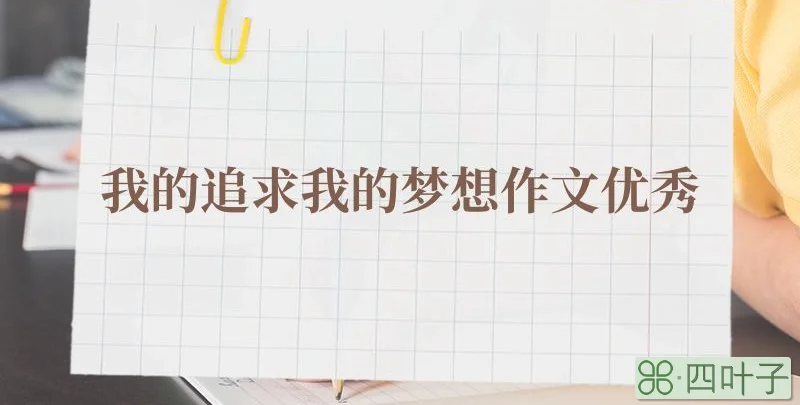 我的追求我的梦想作文优秀
四叶子